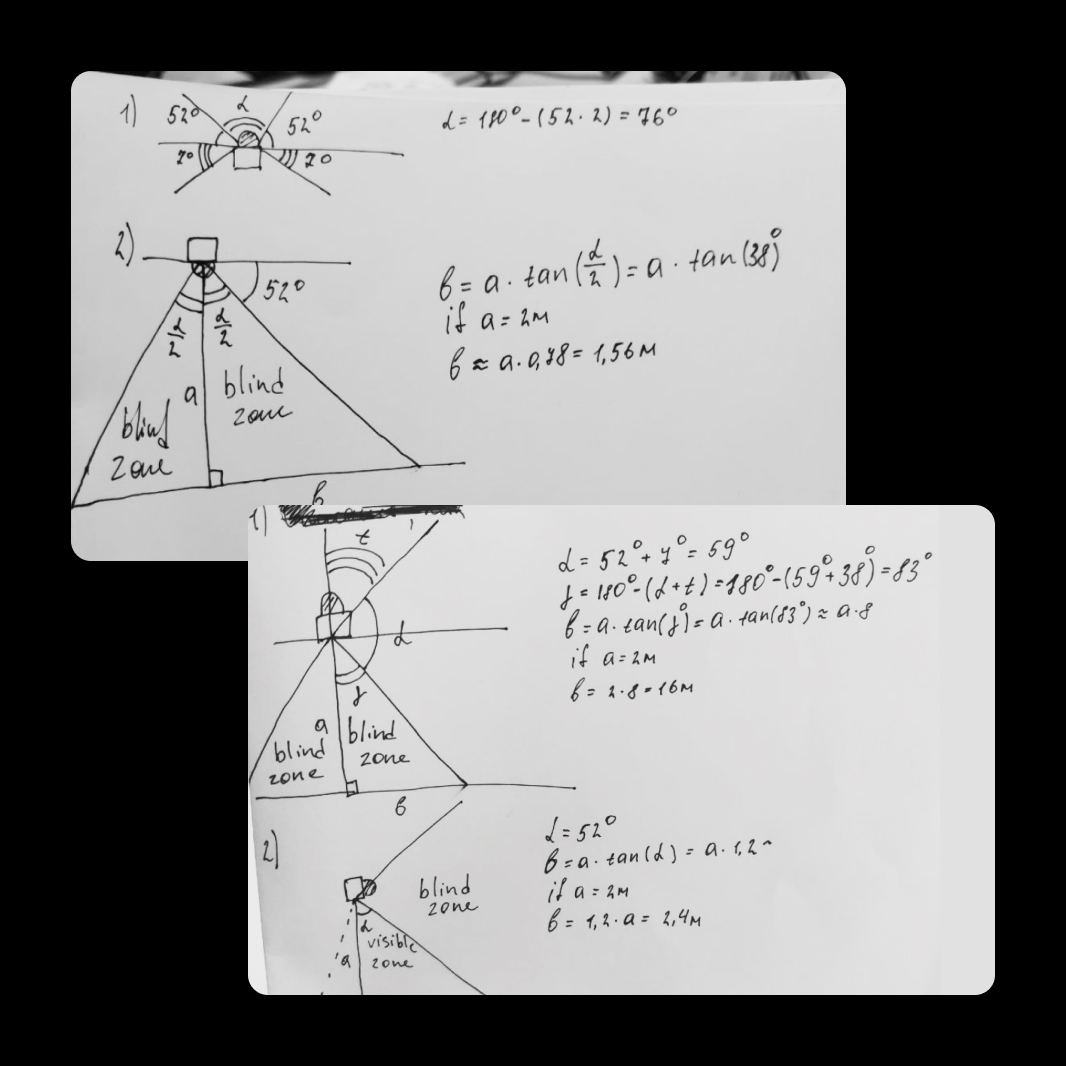 1)
52° α 52°
7° 7°
α = 180° - (52 · 2) = 76°
2)
52°
α/2 α/2
a
blind zone
blind zone
b
b = a · tan(α/2) = a · tan(38°)
if a = 2м
b ≈ a · 0,78 = 1,56м
1)
t
α
γ
a
blind zone
blind zone
b
α = 52° + 7° = 59°
γ = 180° - (α + t) = 180° - (59° + 38°) = 83°
b = a · tan(γ°) = a · tan(83°) ≈ a · 8
if a = 2м
b = 2 · 8 = 16м
2)
blind zone
α
visible zone
a
α = 52°
b = a · tan(α) = a · 1,2~
if a = 2м
b = 1,2 · a = 2,4м